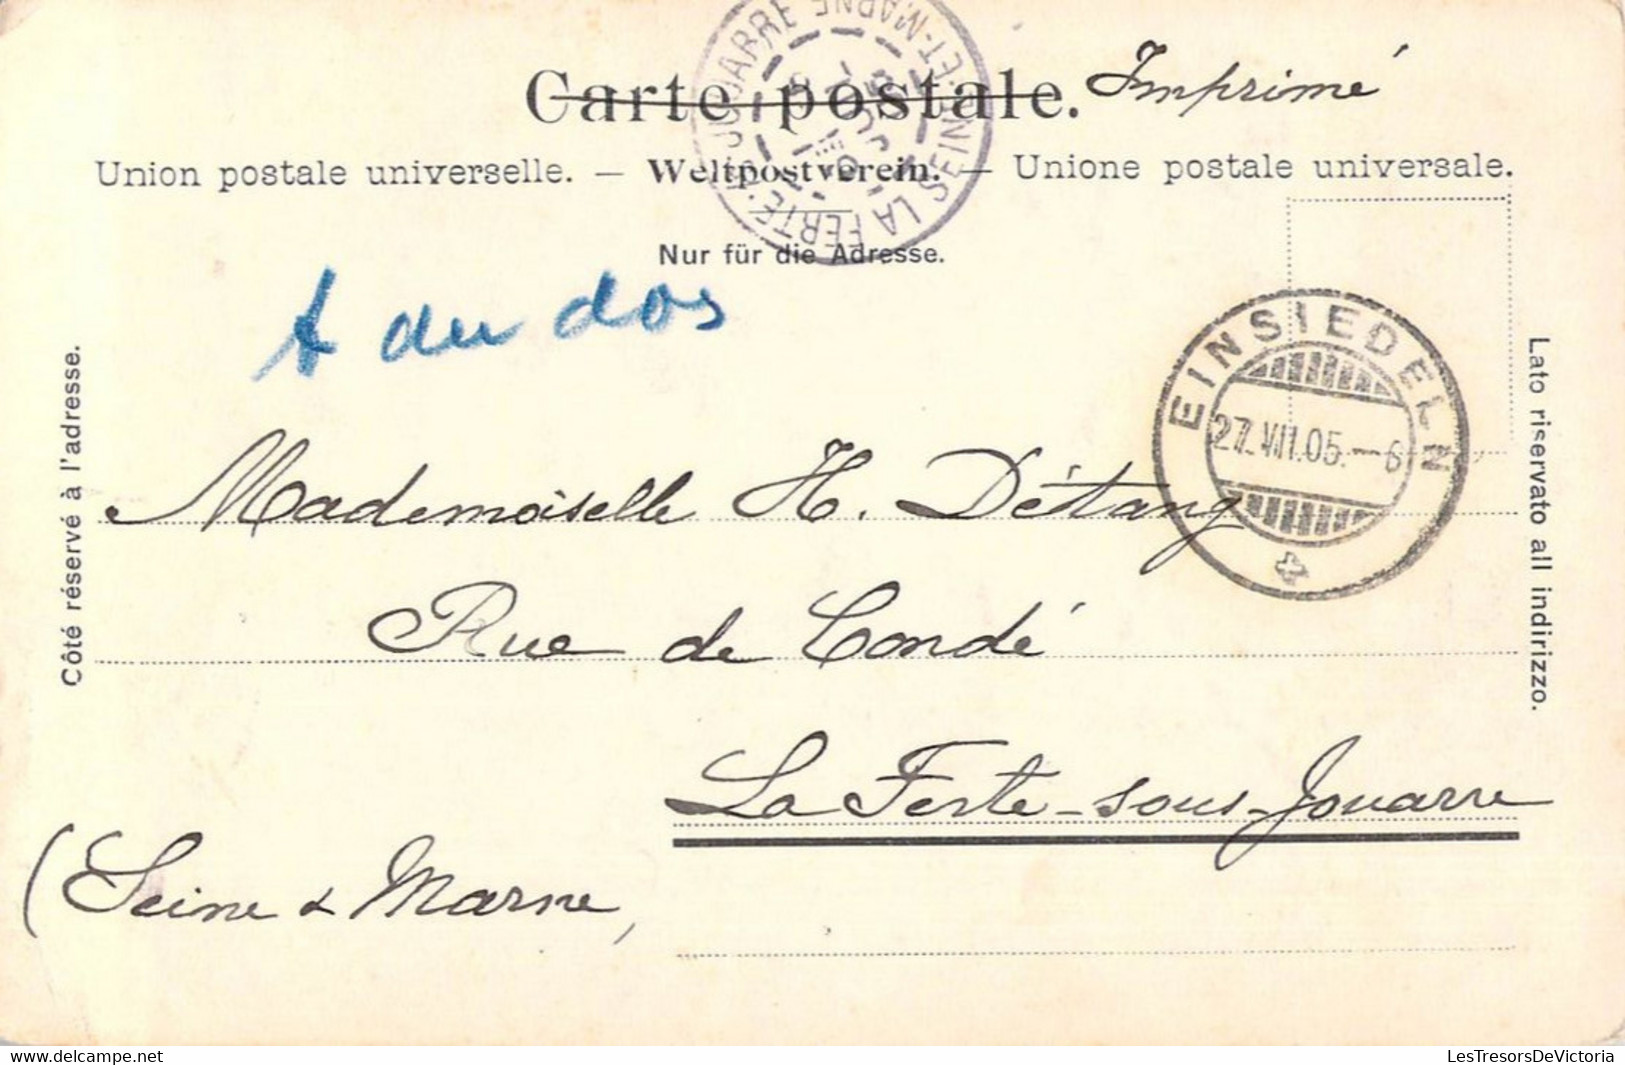 Carte postale. Imprimé
Union postale universelle. — Weltpostverein. — Unione postale universale.
Nur für die Adresse.
LA FERTÉ-S-JOUARRE SEINE-ET-MARNE
du dos
EINSIEDELN
27.VII.05.—6
Côté réservé à l'adresse.
Lato riservato all indirizzo.
Mademoiselle H. Détang
Rue de Condé
La Ferté-sous-Jouarre
(Seine & Marne,
delcampe.net
LesTresorsDeVictoria